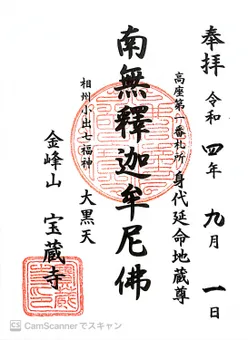 奉拝 令和四年九月一日
高座第一番札所 身代延命地蔵尊
南無釋迦牟尼佛
相州小出七福神 大黒天
金峰山 宝蔵寺
CS CamScanner でスキャン